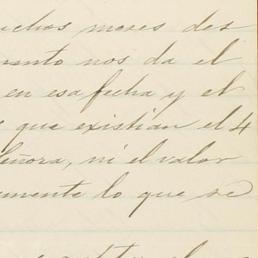 muchos meses des
cuanto nos da el
en esa fecha y el
que existian el 4
Señora, ni el valor
amente lo que se